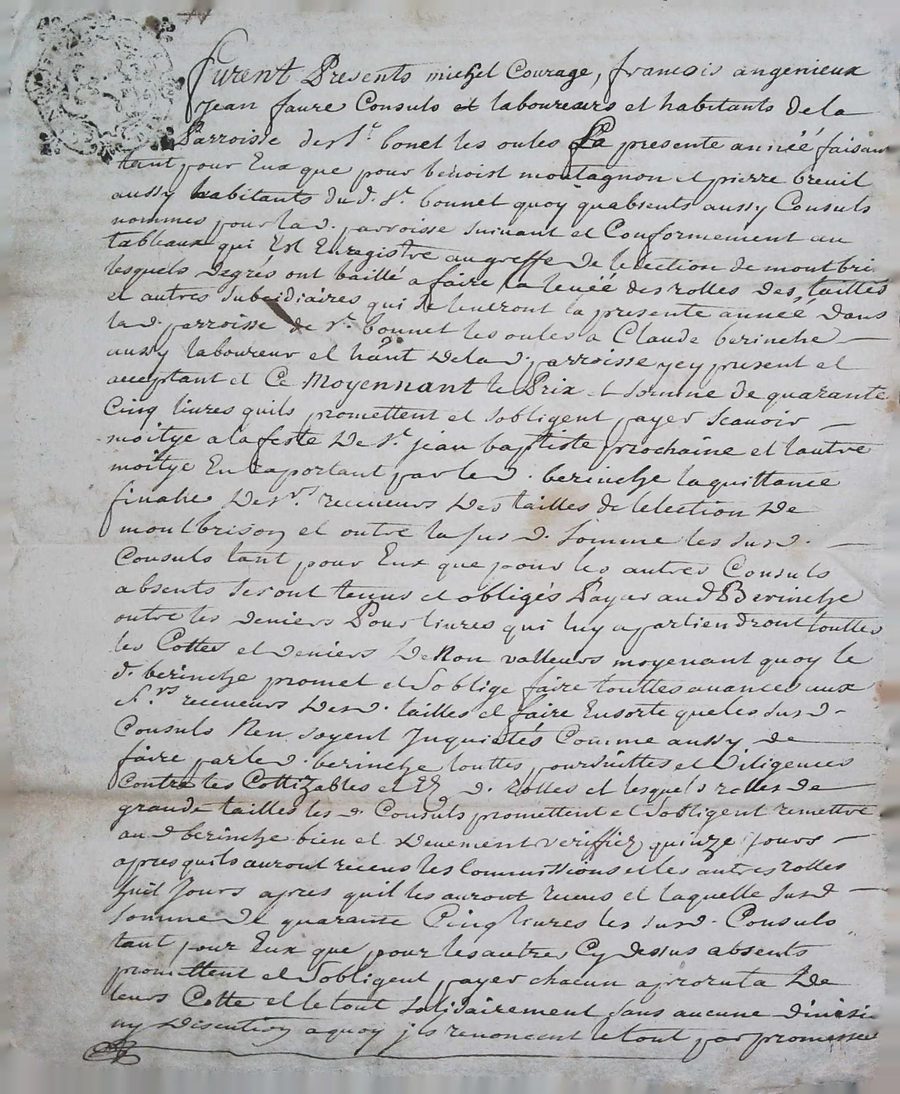 furent Presents michel Courage, francois angenieux
jean faure Consuls et laboureurs et habitants de la
Parroisse de st. bonet les oules La presente année faisant
tant pour Eux que pour benoist montagnon et pierre breuil
aussy habitants du d. st. bonnet quoy quabsents aussy Consuls
nommes pour la d. parroisse suivant et Conformement au
tableaux qui Est Enregistre au greffe de lelection de montbri
lesquels degrés ont baillé a faire la levée des rolles des tailles
et autres subsidiaires qui se leveront la presente année dans
la d. parroisse de st. bonnet les oules a Claude berinche
aussy laboureur et hânt de la d. parroisse yey present et
acceptant et Ce Moyennant le Prix et somme de quarante
Cinq livres quils promettent et sobligent payer scavoir
moitye a la feste de st. jean baptiste prochaine et lautre
moitye En raportant par le d. berinche la quittance
finalle des rs. receveurs des tailles de lelection de
montbrison et outre la sus d. somme les sus d.
Consuls tant pour Eux que pour les autres Consuls
absents seront tenus et obligés Payer au d Berinche
outre les deniers Pour livres qui luy apartiendront touttes
les Cottes et deniers de Non valleurs moyenant quoy le
d. berinche promet et soblige faire touttes avances aux
srs. receveurs des d. tailles et faire Ensorte que les sus d
Consuls Nen soyent Inquietés Comme aussy de
faire par le d. berinche touttes poursuittes et diligences
Contre les Cottizables et d. Rolles et lesquels rolles de
grande tailles les d. Consuls promettent et sobligent remettre
au d berinche bien et deuement veriffiez quinze jours
apres quils auront receus les Commissions et les autres rolles
huit Jours apres quil les auront receus et laquelle sus d
somme de quarante Cinq livres les sus d. Consuls
tant pour Eux que pour les autres Cy dessus absents
promettent et sobligent payer chacun aprorata de
leurs Cotte et le tout solidairement sans aucune divisi
ny discution a quoy jls renoncent le tout par promesse